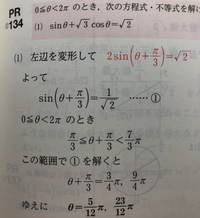 PR 0≦θ<2π のとき，次の方程式・不等式を解け
134 (1) sinθ+√3 cosθ=√2
(1) 左辺を変形して 2sin(θ+π/3)=√2
よって
sin(θ+π/3)=1/√2 ……①
0≦θ<2π のとき
π/3≦θ+π/3<7/3π
この範囲で①を解くと
θ+π/3=3/4π, 9/4π
ゆえに θ=5/12π, 23/12π